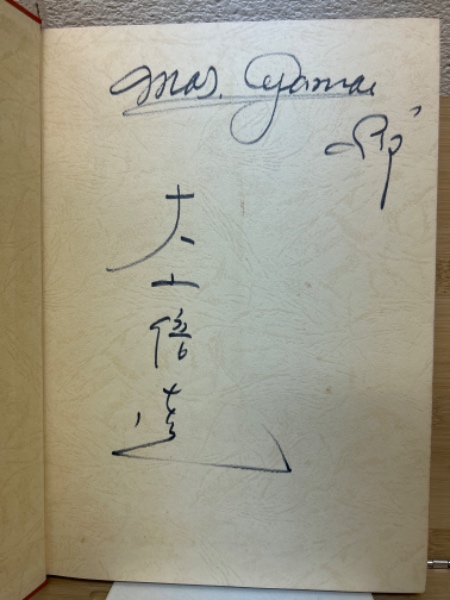 Mas. Oyama
大山倍達